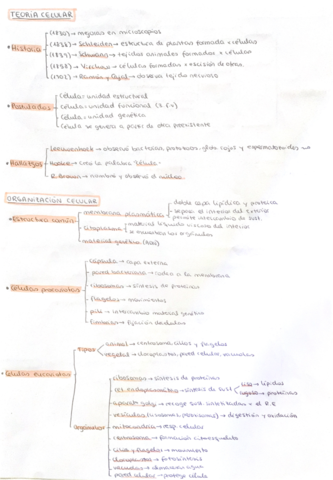 TEORÍA CELULAR
(1830) → mejoras en microscopios
(1838) → Schleiden → estructura de plantas formada x células
• Historia
(1839) → Schwann → tejidos animales formados x células
(1858) → Virchow → células formadas x escisión de otras
(1902) → Ramón y Cajal → observa tejido nervioso
Célula: unidad estructural
• Postulados
Célula: unidad funcional
Célula: unidad genética
Célula se genera a partir de otra preexistente
Leeuwenhoek → observó bacterias, protozoos, glób. rojos y espermatozoides
• Hallazgos
Hooke → Crea la palabra "Célula"
R. Brown → nombra y observa el núcleo
ORGANIZACIÓN CELULAR
doble capa lipídica y proteica
membrana plasmática
separa el interior del exterior
permite intercambio de sust.
• Estructura común
citoplasma → material
se encuentran los orgánulos
material genético (ADN)
cápsula → capa externa
pared bacteriana → rodea a la membrana
ribosomas → síntesis de proteínas
• Células procariotas
flagelos → movimiento
pili → intercambio material genético
fimbrias → fijación
Tipos
animal → centrosoma, cilios y flagelos
vegetal → cloroplastos, pared celular, vacuolas
• Células eucariotas
ribosomas → síntesis de proteínas
ret. endoplasmático → síntesis de sust
liso → lípidos
rugoso → proteínas
aparato golgi → recoge sust. sintetizadas x el R.E
vesículas (lisosomas, peroxisomas) → digestión y oxidación
orgánulos
mitocondria → resp. celular
centrosoma → formación citoesqueleto
cilios y flagelos → movimiento
cloroplastos → fotosíntesis
vacuolas → almacena agua
pared celular → protege célula